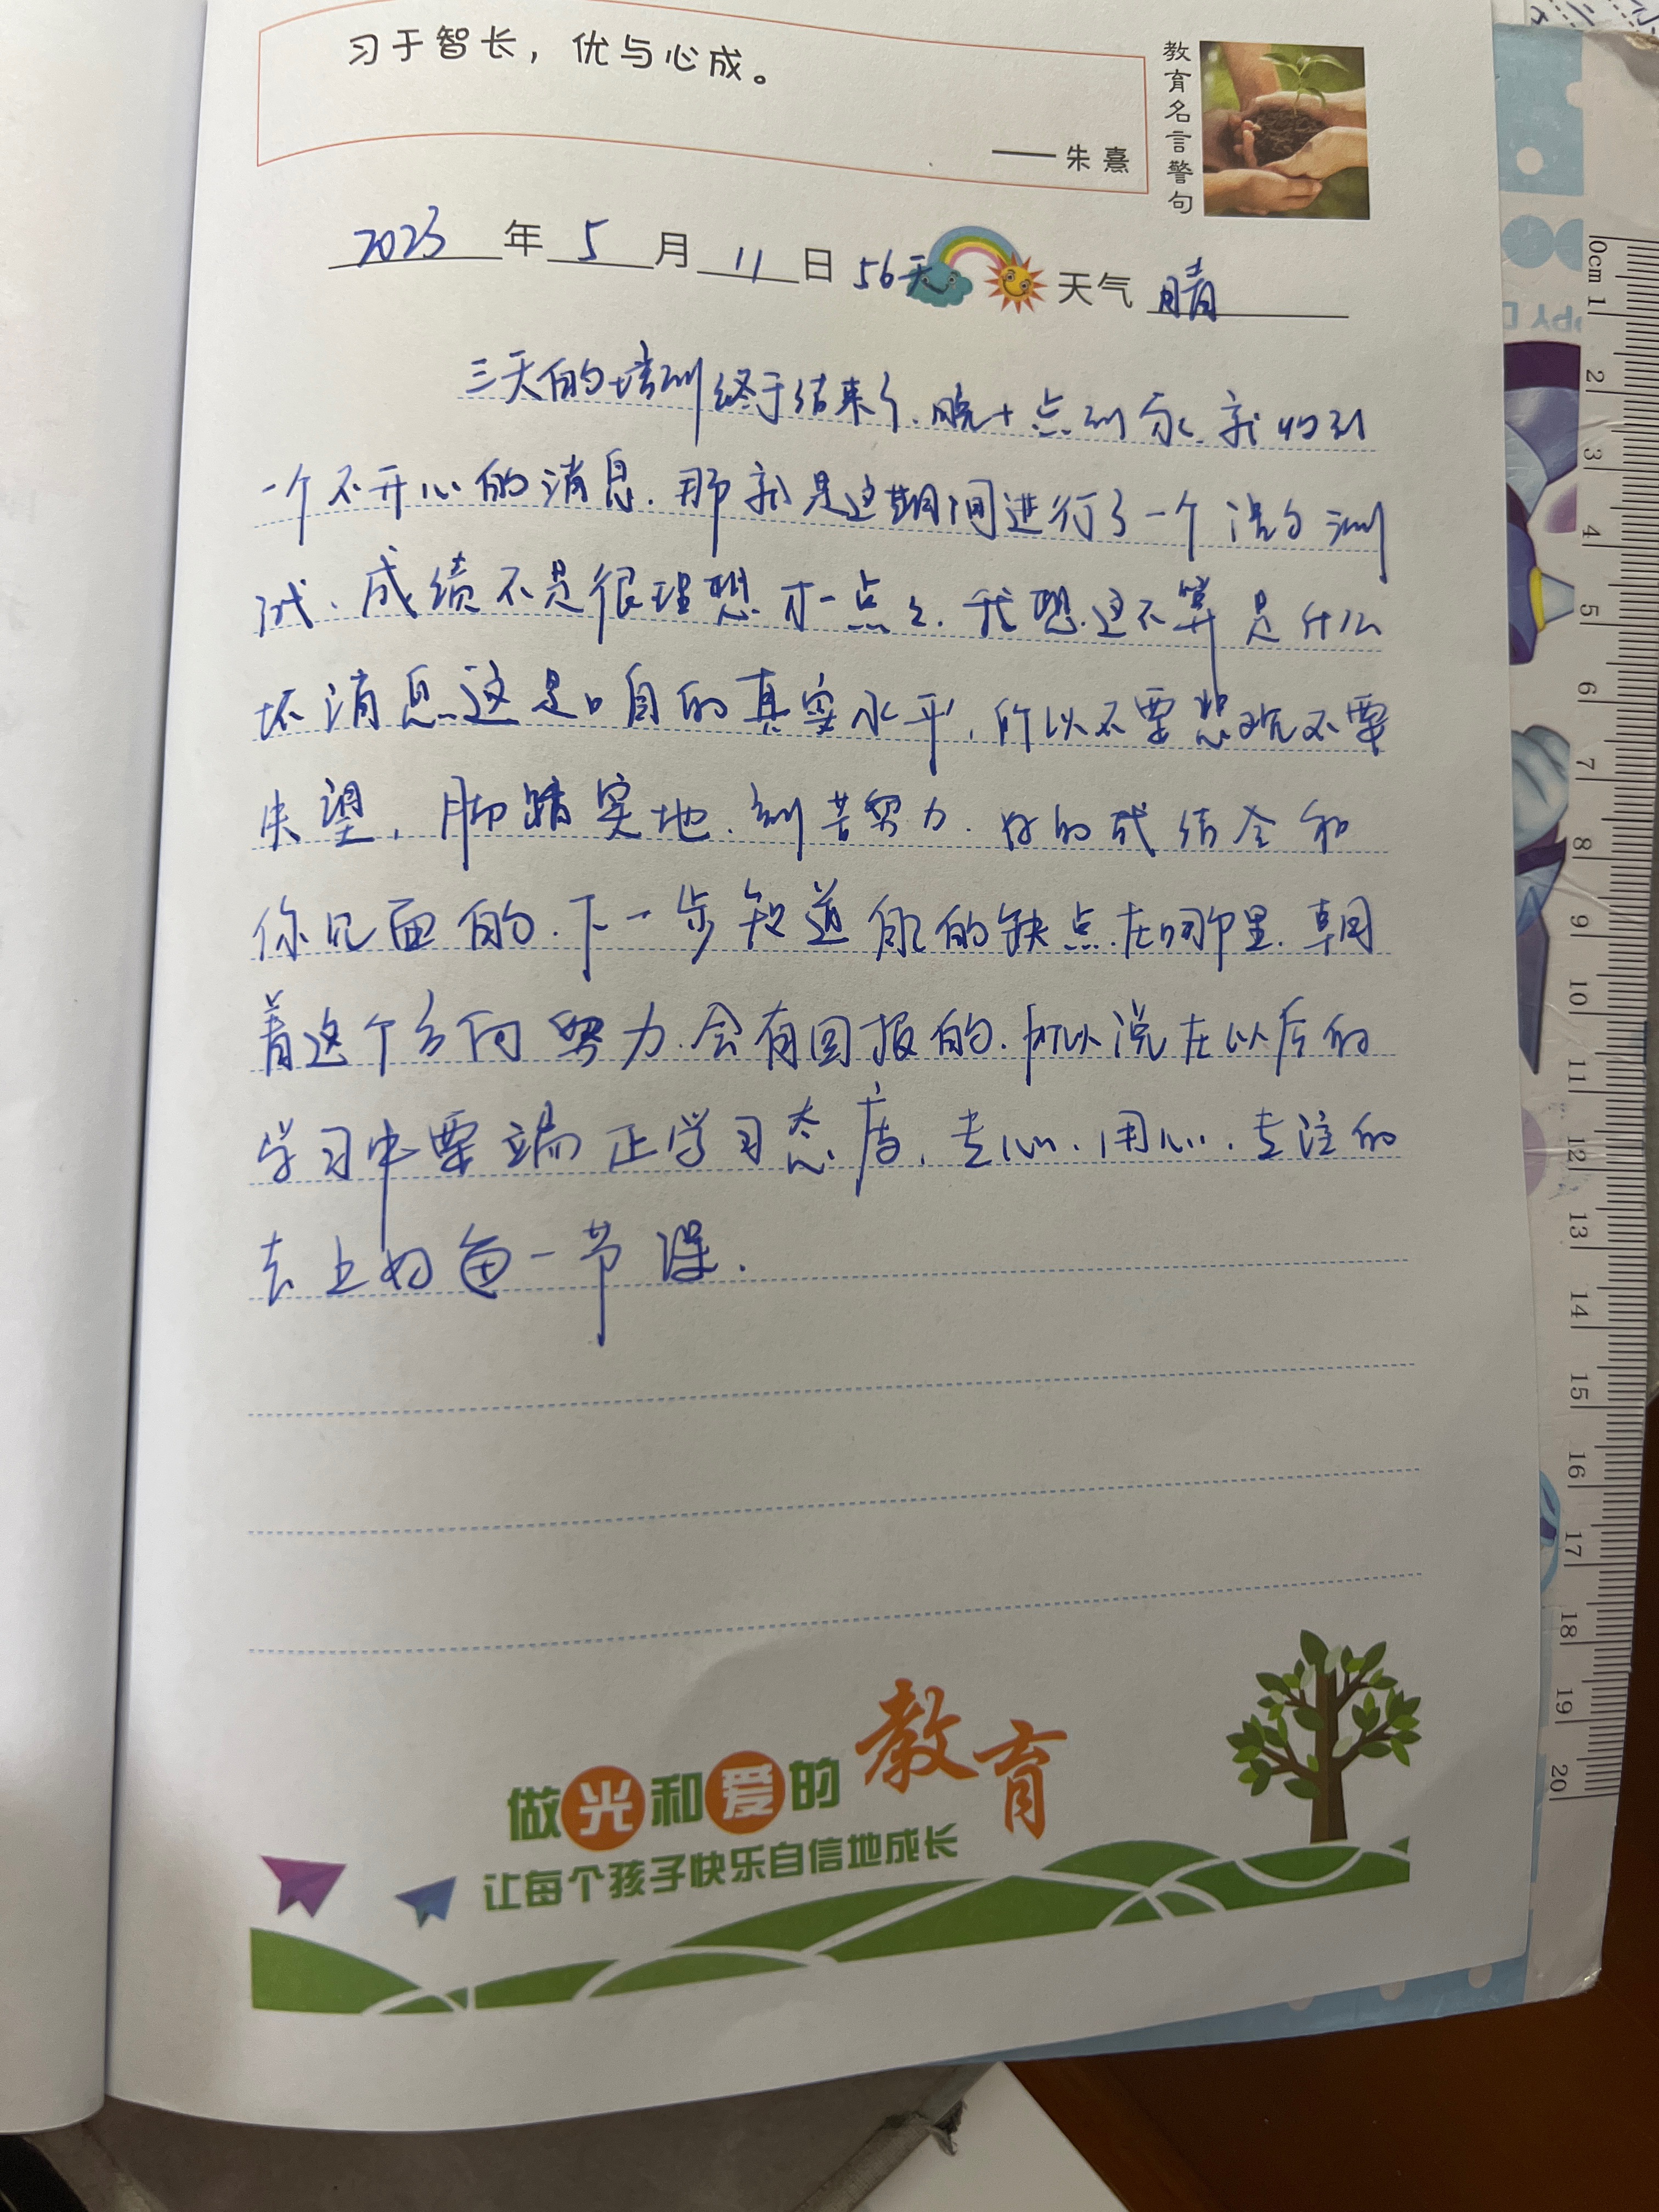 习于智长，优与心成。
——朱熹
教育名言警句
2023年5月11日 56天 天气 晴
三天的培训终于结束了.晚十点到家.就收到
一个不开心的消息.那就是这期间进行了一个 测
试、成绩不是很理想.有一点点.我想.这不算是什么
坏消息.这是咱的真实水平,所以不要悲观不要
失望,脚踏实地.刻苦努力.好的成绩会和
你见面的.下一步知道自己的缺点.在哪里.朝
着这个方向努力.会有回报的.所以说在以后的
学习中要端正学习态度,专心.用心.专注的
去上好每一节课.
做光和爱的教育
让每个孩子快乐自信地成长
0cm 1
2
3
4
5
6
7
8
9
10
11
12
13
14
15
16
17
18
19
20